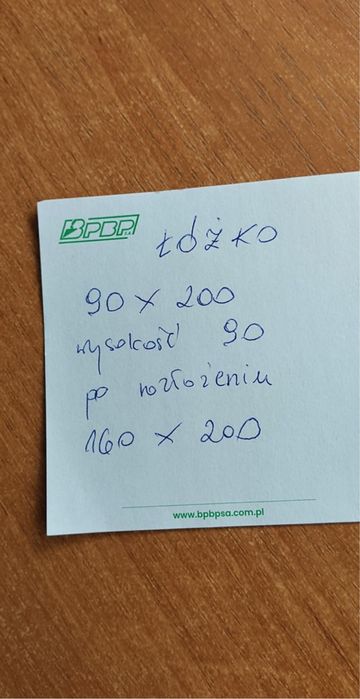 BPBP SA
ŁÓŻKO
90 x 200
wysokość 90
po rozłożeniu
160 x 200
www.bpbpsa.com.pl